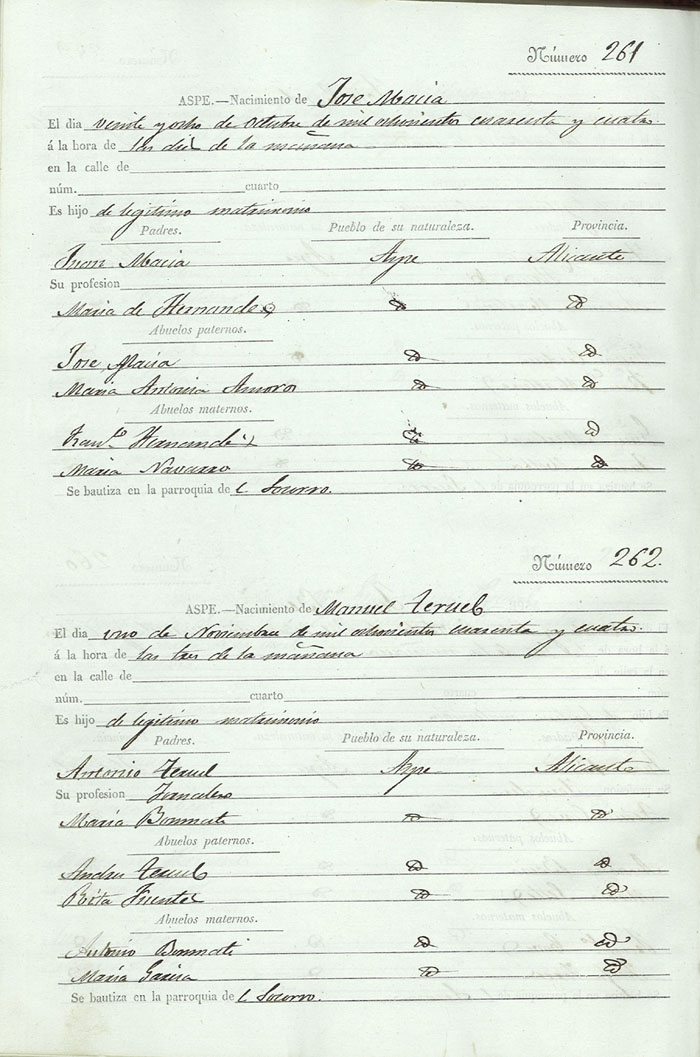 Número 261
ASPE.—Nacimiento de Jose Macia
El dia veinte y ocho de Octubre de mil ochocientos cuarenta y cuatro.
á la hora de las diez de la mañana
en la calle de
núm. cuarto
Es hijo de legitimo matrimonio
Padres. Pueblo de su naturaleza. Provincia.
Juan Macia Aspe Alicante
Su profesion
Maria de Hernandez
Abuelos paternos.
Jose Macia
Maria Antonia Amoros
Abuelos maternos.
Fran.co Hernandez
Maria Navarro
Se bautiza en la parroquia de l Socorro.
Número 262.
ASPE.—Nacimiento de Manuel Teruel
El dia uno de Noviembre de mil ochocientos cuarenta y cuatro.
á la hora de las tres de la mañana
en la calle de
núm. cuarto
Es hijo de legitimo matrimonio
Padres. Pueblo de su naturaleza. Provincia.
Antonio Teruel Aspe Alicante
Su profesion Jornalero
Maria Bonmati
Abuelos paternos.
Andres Teruel
Rosa Fuentes
Abuelos maternos.
Antonio Bonmati
Maria Garcia
Se bautiza en la parroquia de l Socorro.